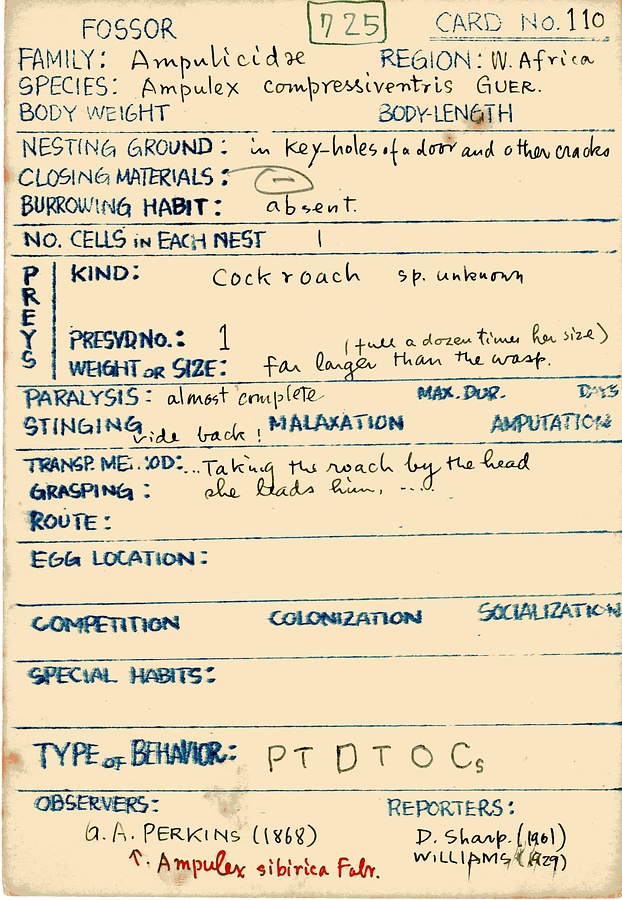 FOSSOR 725 CARD No. 110
FAMILY: Ampulicidae REGION: W. Africa
SPECIES: Ampulex compressiventris GUER.
BODY WEIGHT BODY-LENGTH
NESTING GROUND: in key-holes of a door and other cracks
CLOSING MATERIALS: —
BURROWING HABIT: absent.
NO. CELLS in EACH NEST 1
PREYS
KIND: Cockroach sp. unknown
PRESVD NO.: 1 (full a dozen times her size)
WEIGHT or SIZE: far larger than the wasp.
PARALYSIS: almost complete MAX. DUR. DAYS
STINGING vide back! MALAXATION AMPUTATION
TRANSP. ME. OD: ...Taking the roach by the head
GRASPING: she leads him, ....
ROUTE:
EGG LOCATION:
COMPETITION COLONIZATION SOCIALIZATION
SPECIAL HABITS:
TYPE of BEHAVIOR: P T D T O Cs
OBSERVERS: REPORTERS:
G. A. PERKINS (1868) D. Sharp. (1901)
↑. Ampulex sibirica Fabr. WILLIAMS (1929)